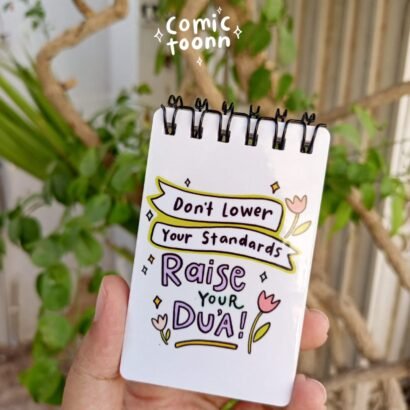 comic
toonn
Don't Lower
Your Standards
Raise
YOUR
DU'A!